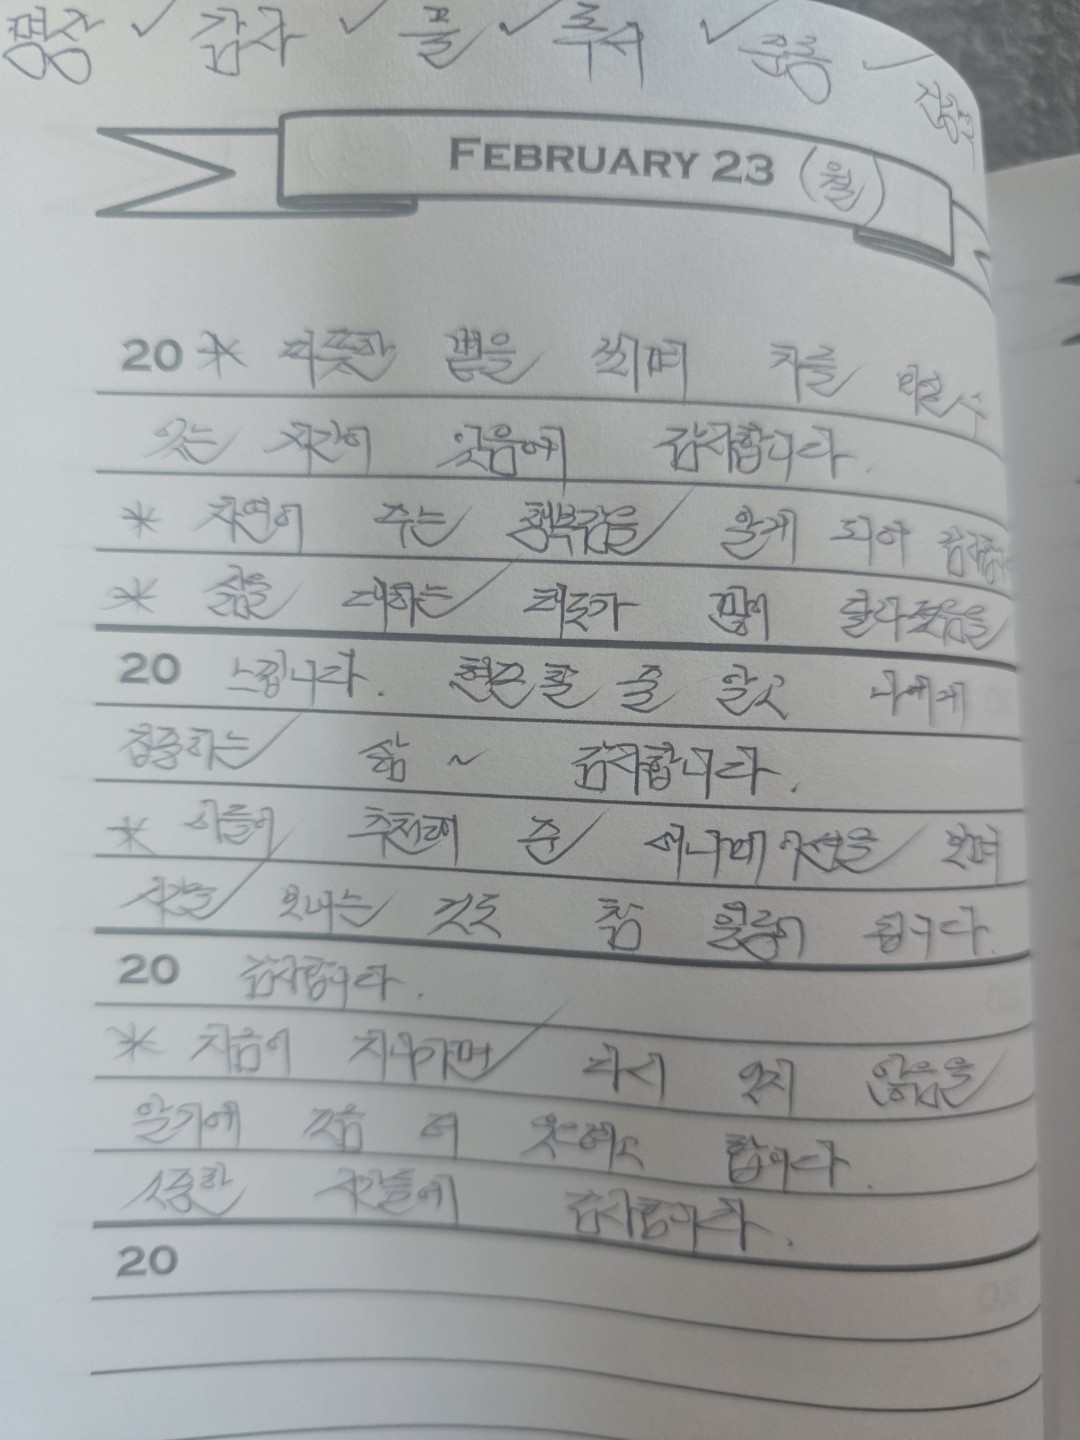 명상 ✓ 감사 ✓ 풀 ✓ 독서 ✓
FEBRUARY 23 (월)
20 * 따뜻한 볕을 쬐며 차를 마실 수
있는 시간이 있음에 감사합니다.
* 자연이 주는 행복감을 알게 되어 감사합니다
* 삶을 대하는 태도가 많이 달라졌음을
20 느낍니다. 현존할 줄 알고 나에게
집중하는 삶 ~ 감사합니다.
* 아들이 추천해 준 애니메이션을 보며
시간을 보내는 것도 참 힐링이 됩니다.
20 감사합니다.
* 지금이 지나가면 다시 오지 않음을
알기에 지금 더 웃으려고 합니다.
소중한 시간들에 감사합니다.
20